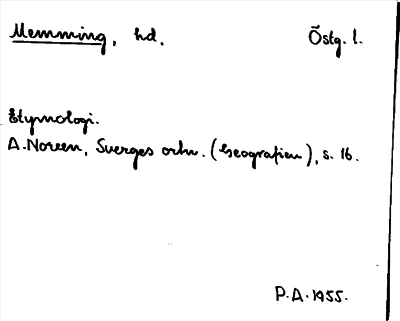 Memming, hd. Östg. l.
Etymologi.
A. Noreen, Sverges ortn. (Geografien), s. 16.
P.A. 1955.